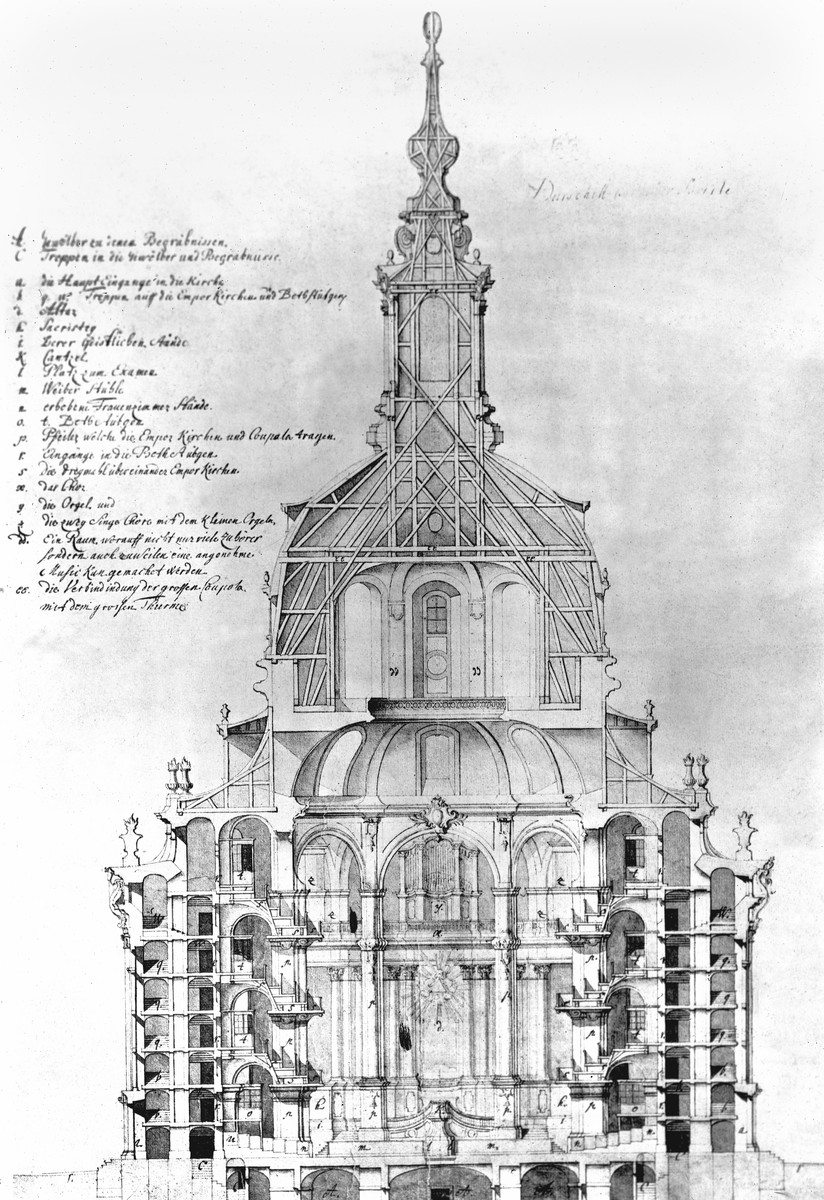 A. Gewölber zu denen Begräbnissen.
C Treppen in die Gewölber und Begräbnisse.
a. die Haupt Eingänge in die Kirche
b q. w. Treppen auff die Empor Kirchen und Bethstübgen
d Altar
h. Sacristey
i Derer Geistlichen Stände
k Cantzel
l Platz zum Examen
m Weiber Stühle
n erhobene Frauenzimmer Stände.
o. t. Beth Stübgen
p. Pfeiler welche die Empor Kirchen und Coupola tragen.
r. Eingänge in die Beth Stübgen.
s die dreymahl übereinander Empor Kirchen.
x. das Chor
y die Orgel. und
z die zwey Singe Chöre mit dem kleinen Orgeln,
Ein Raum, worauff nicht nur viele zuhörer
sondern auch zuweilen eine angenehme
Music kan gemacht werden
cc. die Verbindindung der grossen Coupola
mit dem grossen Thurme